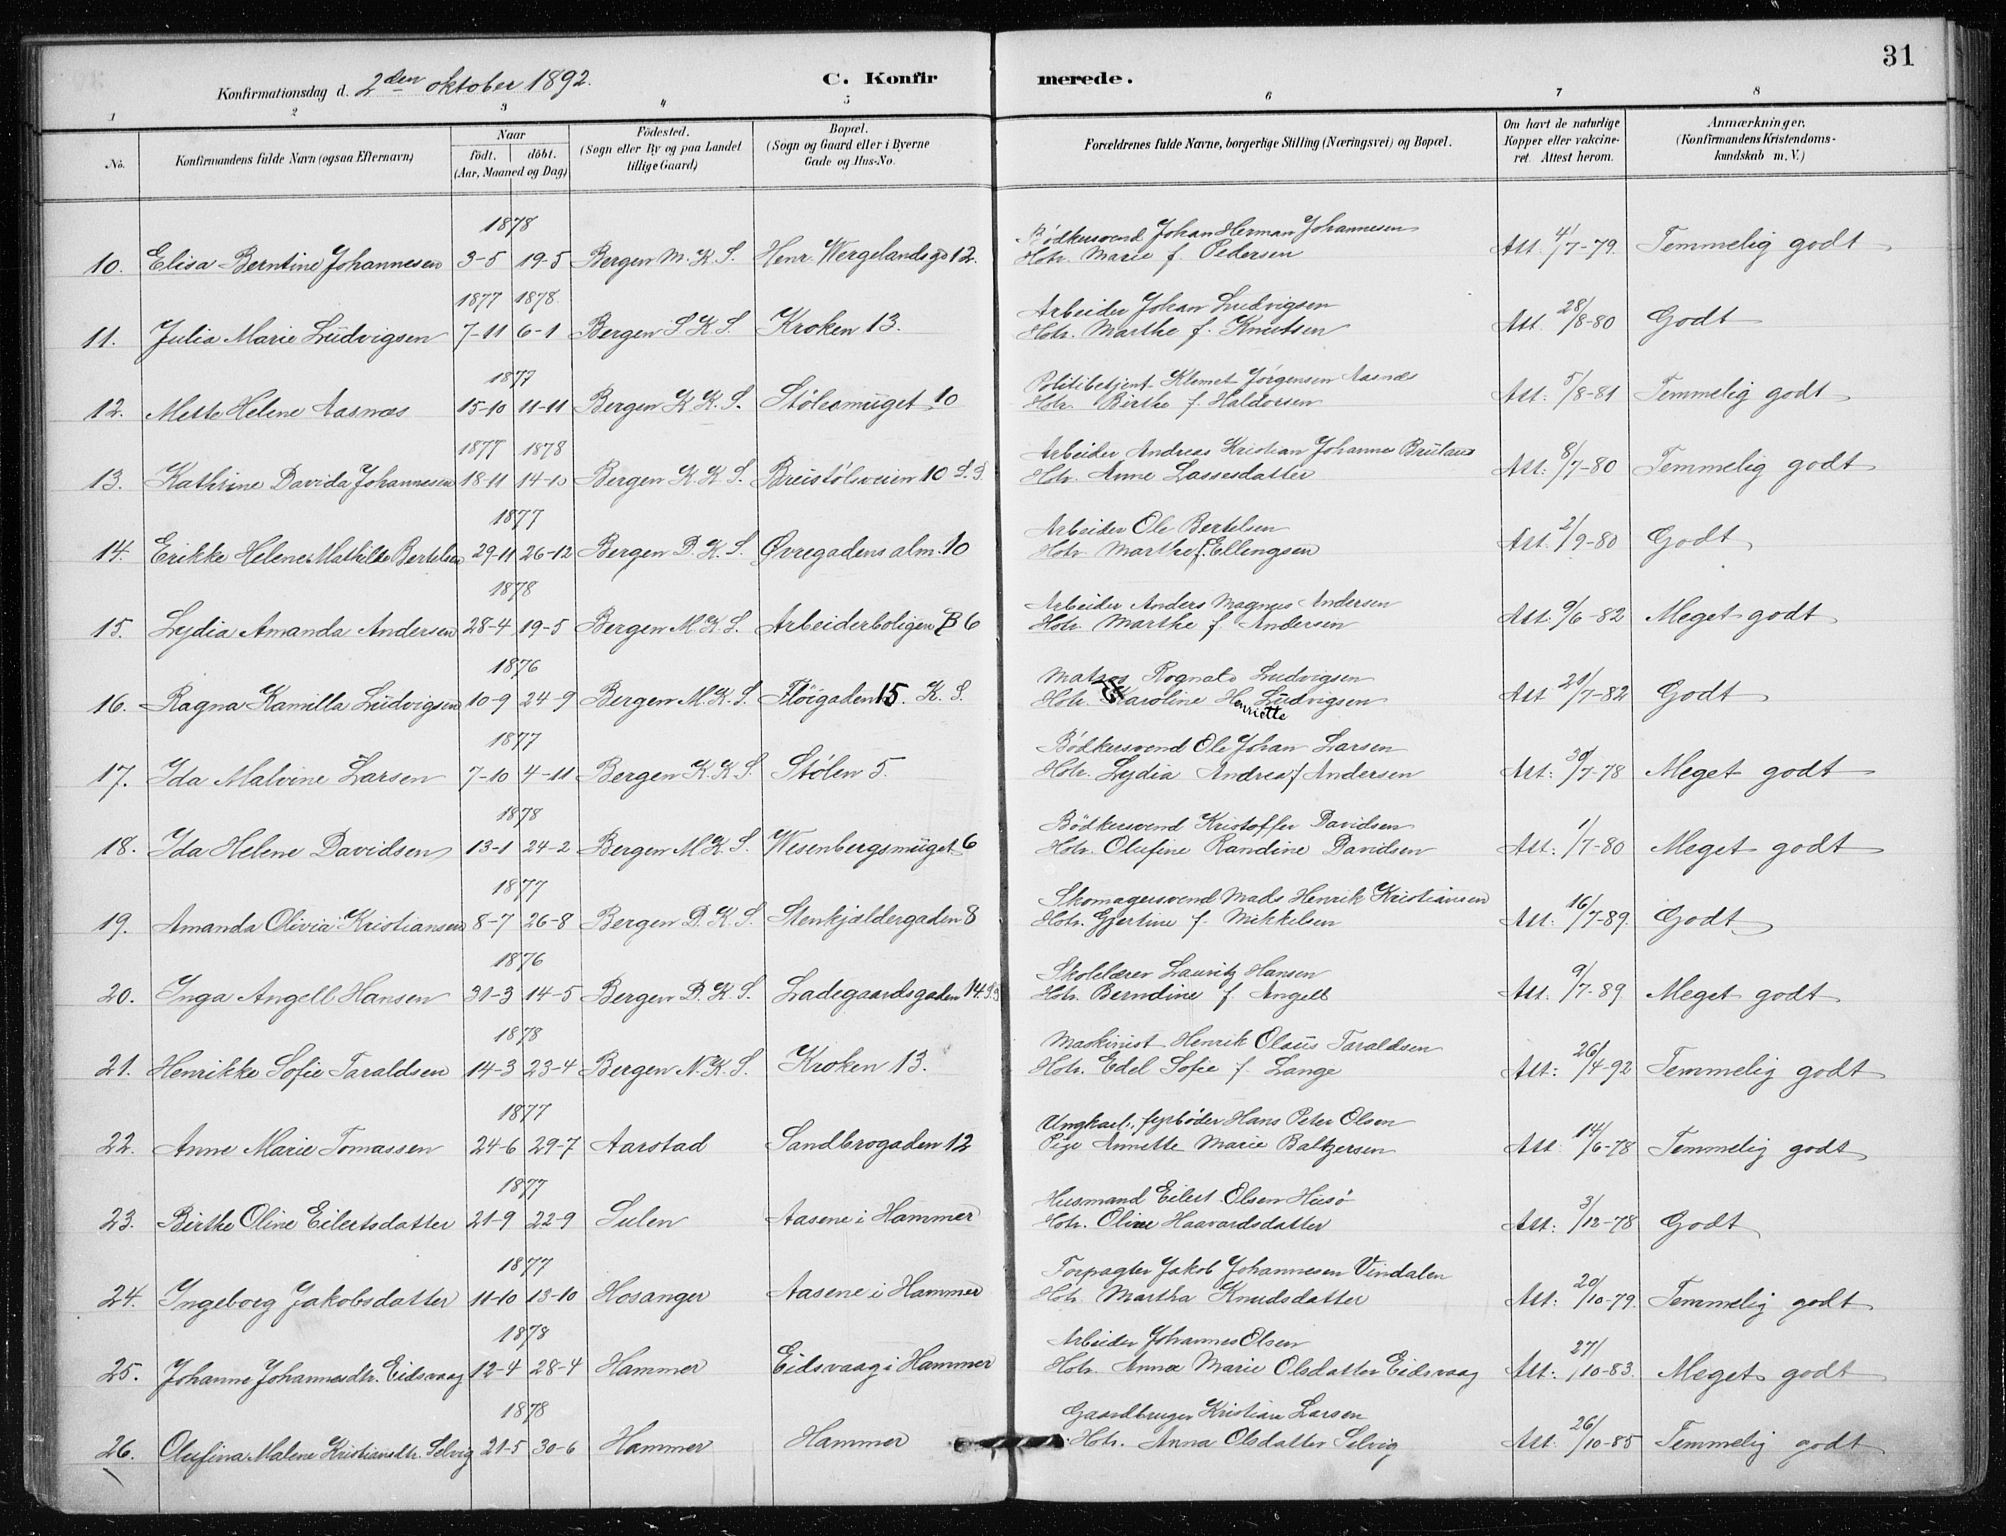 31
Konfirmationsdag d. 2den oktober 1892.
C. Konfirmerede.
1 2 3 4 5 6 7 8
No. Konfirmandens fulde Navn (ogsaa Efternavn) Naar födt. döbt. (Aar, Maaned og Dag) Födested. (Sogn eller By og paa Landet tillige Gaard) Bopæl. (Sogn og Gaard eller i Byerne Gade og Hus-No. Forældrenes fulde Navne, borgerlige Stilling (Næringsvei) og Bopæl. Om havt de naturlige Kopper eller vakcineret. Attest herom. Anmærkninger. (Konfirmandens Kristendomskundskab m. V.)
1878 Bödkersvend Johan Herman Johannesen
10. Elisa Berntine Johannesen 3-5 19-5 Bergen M. K. S. Henr. Wergelandsgd 12. Hstr. Marie f. Pedersen Att. 4/7-79. Temmelig godt
1877 1878 Arbeider Johan Ludvigsen
11. Julia Marie Ludvigsen 7-11 6-1 Bergen S K S. Kroken 13. Hstr. Marthe f. Knutsen Att. 28/8-80 Godt
1877 Politibetjent Klemet Jørgensen Aasnæs
12. Mette Helene Aasnæs 15-10 11-11 Bergen K K. S. Stølesmuget 10 Hstr. Birthe f. Haldorsen Att: 5/8-81 Temmelig godt
1877 1878 Arbeider Andreas Kristian Johannes
13. Kathrine Davida Johannesen 18-11 14-10 Bergen K. K. S. Breistølsveien 10 Hstr. Anne Lassesdatter Att: 8/7-80 Temmelig godt
1877 Arbeider Ole Bertelsen
14. Erikke Helene Mathilde Bertelsen 29-11 26-12 Bergen D. K. S. Øvregadens alm. 10 Hstr. Marthe f. Ellingsen Att. 2/9-80 Godt
1878 Arbeider Anders Magnus Andersen
15. Lydia Amanda Andersen 28-4 19-5 Bergen M. K. S. Arbeiderboligen B 6 Hstr. Marthe f. Andersen Att. 9/6-82 Meget godt
1876 Matros Rognald Ludvigsen
16. Ragna Kamilla Ludvigsen 10-9 24-9 Bergen M. K. S. Fløigaden 15. K. S. Hstr. Karoline Henriette Ludvigsen Att 21/7-82 Godt
1877 Bödkersvend Ole Johan Larsen
17. Ida Malvine Larsen 7-10 4-11 Bergen K. K. S. Stølen 5. Hstr. Lydia Andrea f Andersen Att: 30/7-78 Meget godt
1878 Bödkersvend Kristoffer Davidsen
18. Ida Helene Davidsen 13-1 24-2 Bergen M K. S. Wesenbergsmuget 6 Hstr. Olufine Randine Davidsen Att: 1/7-80 Meget godt
1877 Skomagersvend Mads Henrik Kristiansen
19. Amanda Olivia Kristiansen 8-7 26-8 Bergen D. K. S. Stenkjældergaden 8 Hstr. Gjertine f. Mikkelsen Att: 16/7-89. Godt
1876 Skolelærer Lauritz Hansen
20. Inga Angell Hansen 31-3 14-5 Bergen D. K. S. Ladegaardsgaden 14 Hstr. Berndine f. Angell Att: 9/7-89 Meget godt
1878 Maskinist Henrik Olaus Taraldsen
21. Henrikke Sofie Taraldsen 14-3 23-4 Bergen N. K. S. Kroken 13. Hstr. Edel Sofie f. Lange Att: 26/4-92 Temmelig godt
1877 Ungkarl, fyrbøder Hans Peter Olsen
22. Anne Marie Tomassen 24-6 29-7 Aarstad Sandbrogaden 12 Pige Annette Marie Baltzersen Att: 14/6-78 Temmelig godt
1877 Husmand Eilert Olsen Husø
23. Birthe Oline Eilertsdatter 21-9 22-9 Sulen Aasene i Hammer Hstr. Oline Haavardsdatter Att: 3/12-78 Godt
1877 Forpagter Jakob Johannesen Vindalen
24. Ingeborg Jakobsdatter 11-10 13-10 Hosanger Aasene i Hammer Hstr. Martha Knudsdatter Att: 20/10-79. Temmelig godt
1878 Arbeider Johannes Olsen
25. Johanne Johannesdtr. Eidsvaag 12-4 28-4 Hammer Eidsvaag i Hammer Hstr. Anna Marie Olsdatter Eidsvaag Att: 27/10-83. Meget godt
1878 Gaardbruger Kristian Larsen
26. Olufina Malene Kristiansdtr. Selvig 21-5 30-6 Hammer Hammer Hstr. Anna Olsdatter Selvig Att 26/10-85 Temmelig godt